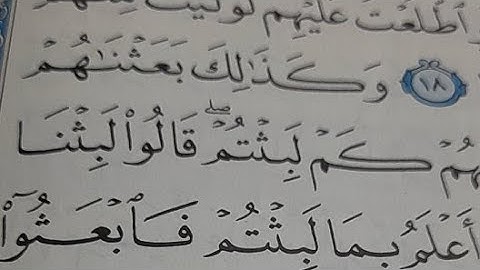 ٱطَّلَعْتَ عَلَيْهِمْ لَوَلَّيْتَ
١٨ وَكَذَٰلِكَ بَعَثْنَٰهُمْ
كَمْ لَبِثْتُمْ ۖ قَالُوا۟ لَبِثْنَا
أَعْلَمُ بِمَا لَبِثْتُمْ فَٱبْعَثُوٓا۟